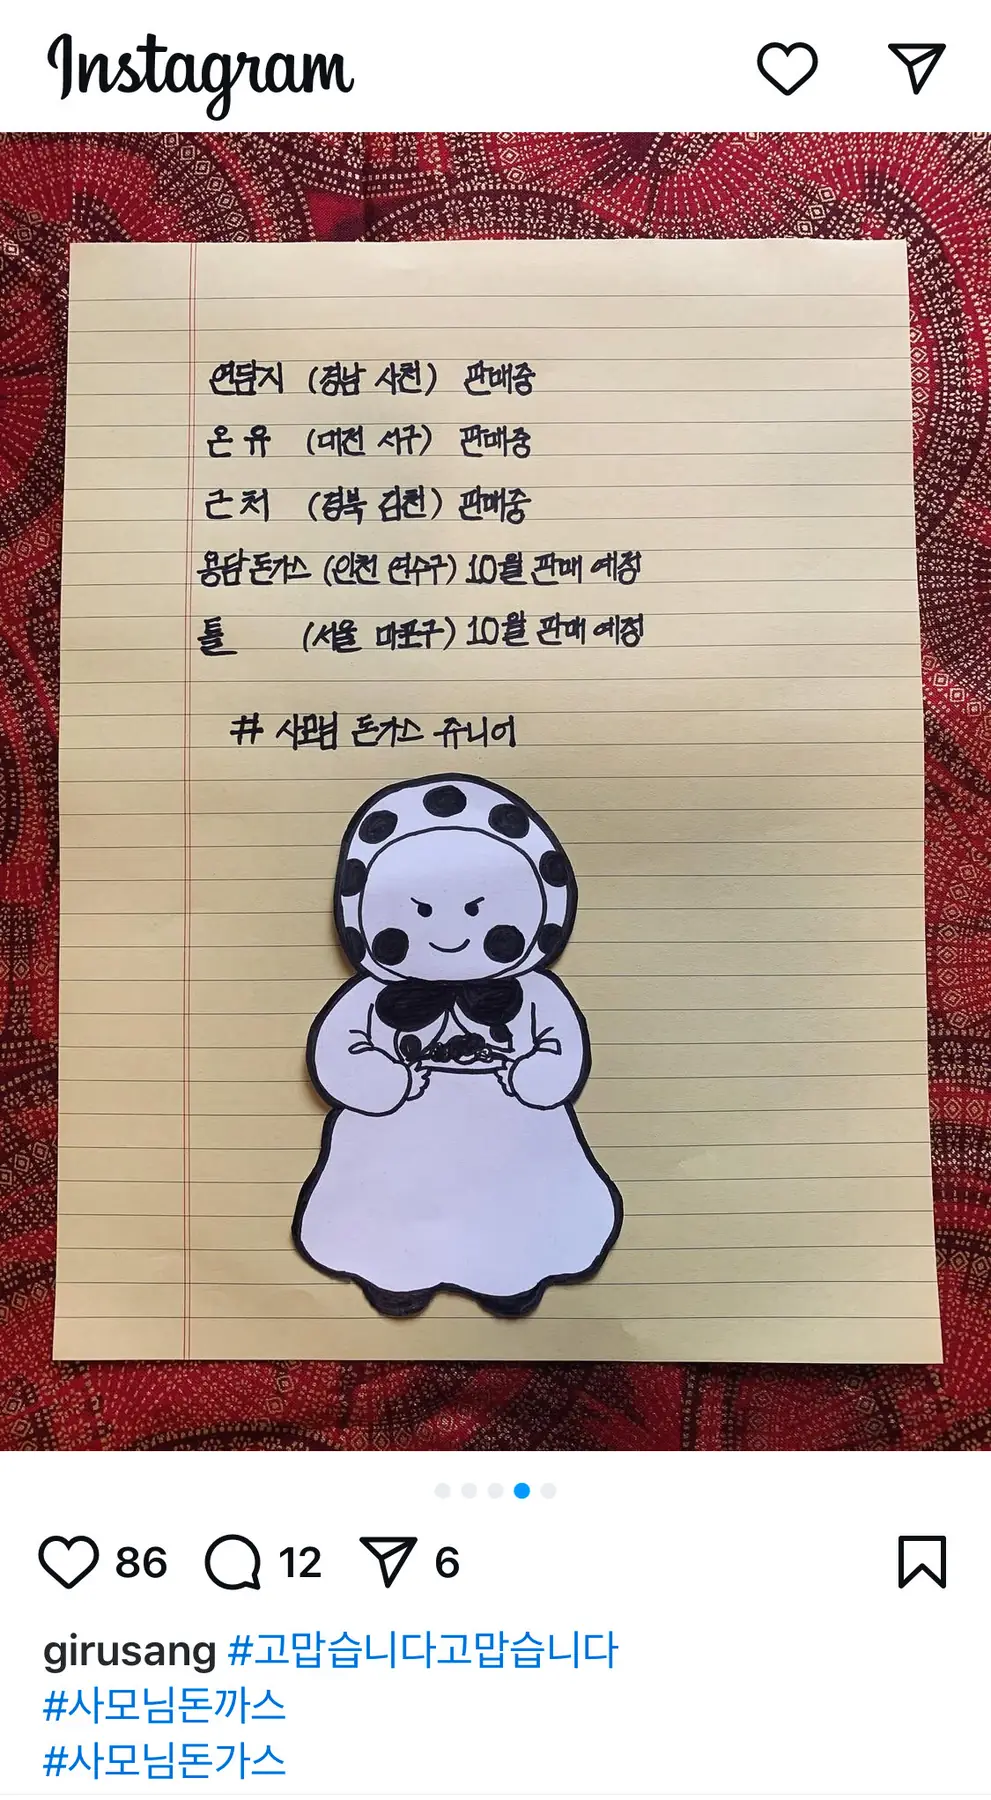 Instagram
연담지 (경남 사천) 판매중
온유 (대전 서구) 판매중
근처 (경북 김천) 판매중
용담돈가스 (인천 연수구) 10월 판매 예정
틀 (서울 마포구) 10월 판매 예정
# 사모님 돈가스 쥬니어
86 12 6
girusang #고맙습니다고맙습니다
#사모님돈까스
#사모님돈가스